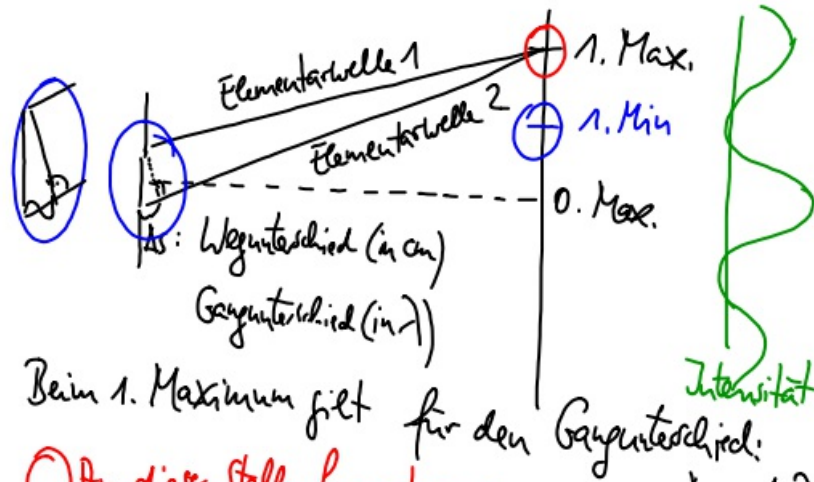 Elementarwelle 1
1. Max.
Elementarwelle 2
1. Min
0. Max.
Δs: Wegunterschied (in cm)
Gangunterschied (in λ)
Intensität
Beim 1. Maximum gilt für den Gangunterschied:
An dieser Stelle